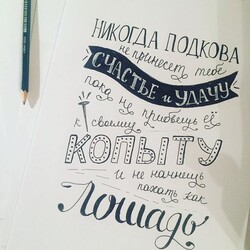 НИКОГДА ПОДКОВА
не принесет тебе
СЧАСТЬЕ и УДАЧУ
пока не прибьешь её
к своему
КОПЫТУ
и не начнешь
пахать как
Лошадь